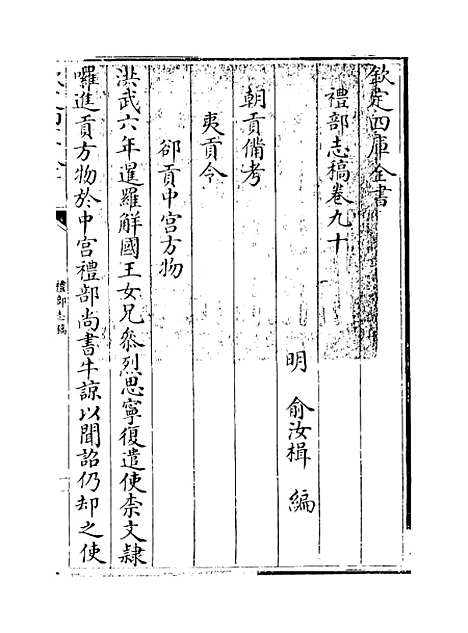 欽定四庫全書
禮部志稿卷九十
明 俞汝楫 編
朝貢備考
夷貢令
卻貢中宮方物
洪武六年暹羅斛國王女兄參烈思寧復遣使柰文隸
囉進貢方物於中宮禮部尚書牛諒以聞詔仍却之使
禮部志稿